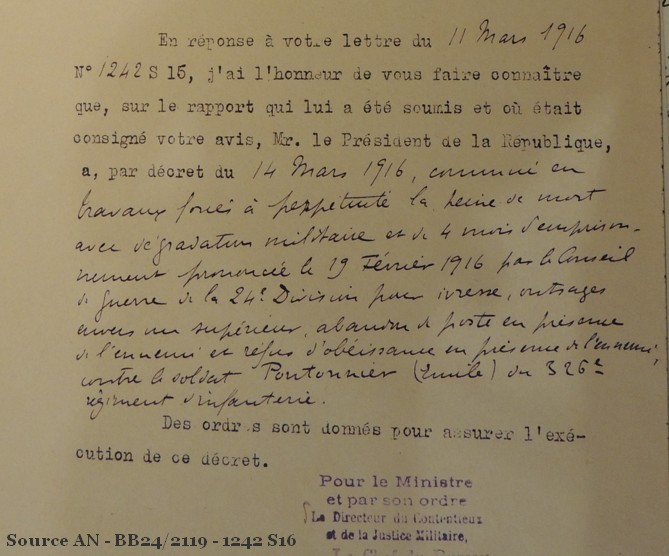 En réponse à votre lettre du 11 Mars 1916
N° 1242 S 15, j'ai l'honneur de vous faire connaître
que, sur le rapport qui lui a été soumis et où était
consigné votre avis, Mr. le Président de la République,
a, par décret du 14 Mars 1916, commué en
travaux forcés à perpétuité la peine de mort
avec dégradation militaire et de 4 mois d'emprison-
nement prononcée le 19 Février 1916 par le Conseil
de guerre de la 24e Division pour ivresse, outrages
envers un supérieur, abandon de poste en présence
de l'ennemi et refus d'obéissance en présence de l'ennemi,
contre le soldat Pontonnier (Emile) du 326e
régiment d'infanterie.
Des ordres sont donnés pour assurer l'exé-
cution de ce décret.
Pour le Ministre
et par son ordre
Le Directeur du Contentieux
et de la Justice Militaire,
Source AN - BB24/2119 - 1242 S16